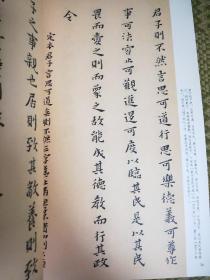 君子則不然言思可道行思可樂德義可尊作
事可法容止可觀進退可度以臨其民是以其民
畏而愛之則而象之故能成其德教而行其政
令
定本君子言思可道無則不然三字
子之事親也居則致其敬養則致